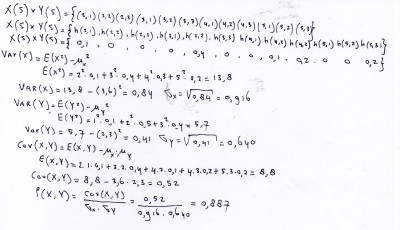 X(S) x Y(S) = {(2,1) (2,2) (2,3) (3,1) (3,2) (3,3) (4,1) (4,2) (4,3) (5,1) (5,2) (5,3)}
X(S) x Y(S) = {h(2,1), h(2,2), h(2,3), h(3,1), h(3,2), h(3,3) h(4,1) h(4,2) h(4,3) h(5,1) h(5,2) h(5,3)}
X(S) x Y(S) = { 0,1, 0, 0, 0, 0,4, 0, 0, 0,1, 0,2 0 0 0,2}
Var(X) = E(X²) - μx²
E(X²) = 2².0,1 + 3².0,4 + 4².0,3 + 5².0,2 = 13,8
VAR(X) = 13,8 - (3,6)² = 0,84 σx = √0,84 = 0,916
VAR(Y) = E(Y²) - μy²
E(Y²) = 1².0,1 + 2².0,5 + 3².0,4 = 5,7
Var(Y) = 5,7 - (2,3)² = 0,41 σy = √0,41 = 0,640
Cov(X,Y) = E(X,Y) - μx.μy
E(X,Y) = 2.1.0,1 + 3.2.0,4 + 4.2.0,1 + 4.3.0,2 + 5.3.0,2 = 8,8
Cov(X,Y) = 8,8 - 3,6.2,3 = 0,52
ρ(X,Y) = Cov(X,Y) / σx.σy = 0,52 / 0,916.0,640 = 0,887